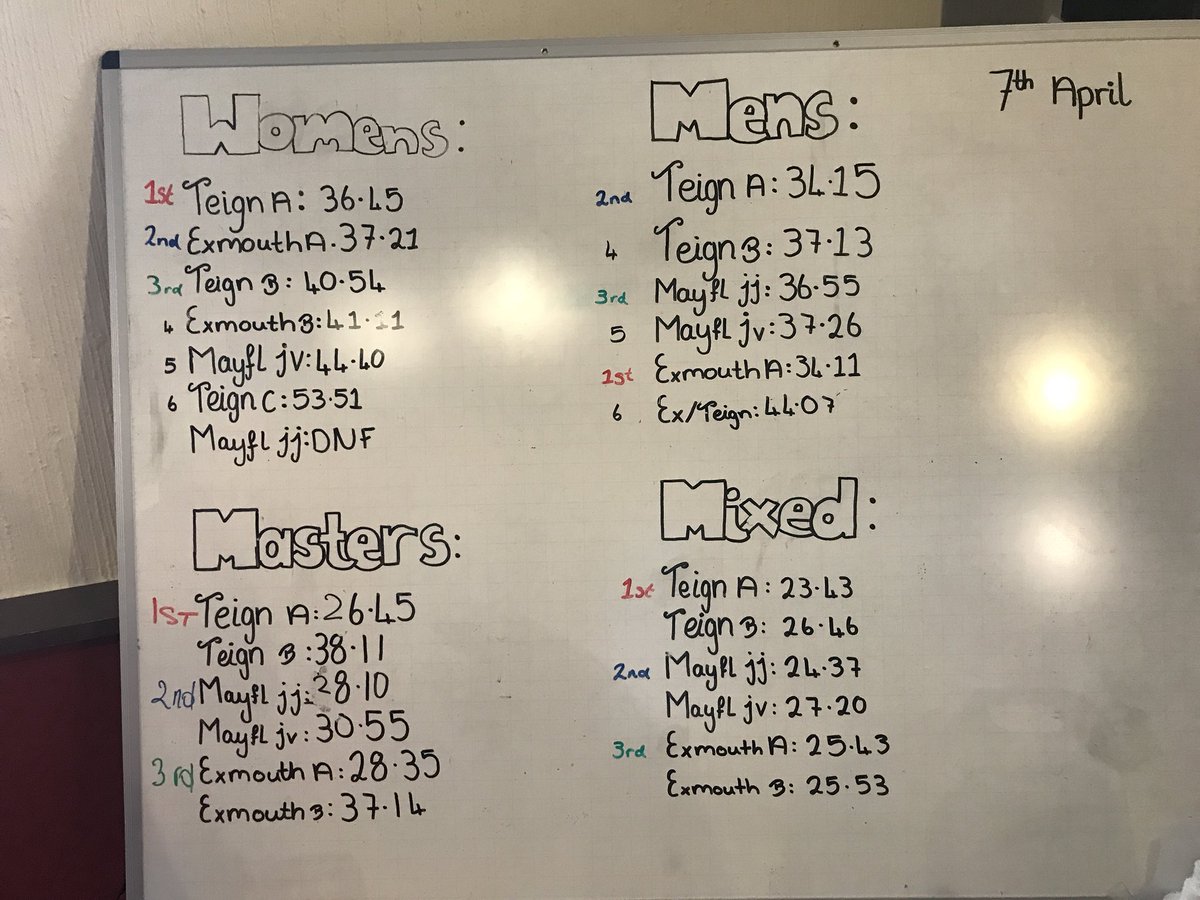 Womens:
1st Teign A: 36.45
2nd Exmouth A. 37.21
3rd Teign B: 40.54
4 Exmouth B: 41.11
5 Mayfl jv: 44.40
6 Teign C: 53.51
Mayfl jj: DNF
Mens:
2nd Teign A: 34.15
4 Teign B: 37.13
3rd Mayfl jj: 36.55
5 Mayfl jv: 37.26
1st Exmouth A: 34.11
6 Ex/Teign: 44.07
7th April
Masters:
1ST Teign A: 26.45
Teign B: 38.11
2nd Mayfl jj: 28.10
Mayfl jv: 30.55
3rd Exmouth A: 28.35
Exmouth B: 37.14
Mixed:
1st Teign A: 23.43
Teign B: 26.46
2nd Mayfl jj: 24.37
Mayfl jv: 27.20
3rd Exmouth A: 25.43
Exmouth B: 25.53